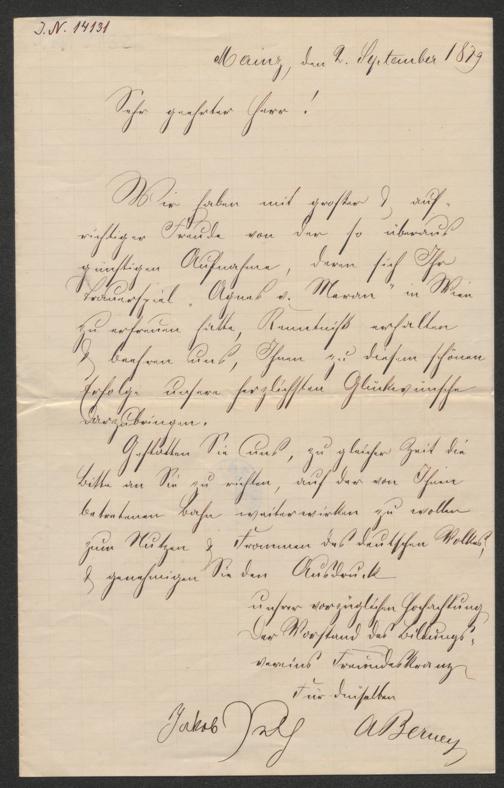 J.N. 14131
Mainz, den 2. September 1879
Sehr geehrter Herr!
Wir haben mit großer & auf-
richtiger Freude von der so überaus
günstigen Aufnahme, deren sich Ihr
Trauerspiel „Agnes v. Meran" in Wien
zu erfreuen hatte, Kenntniß erhalten
& beehren uns, Ihnen zu diesem schönen
Erfolge unsere herzlichsten Glückwünsche
darzubringen.
Gestatten Sie uns, zu gleicher Zeit die
Bitte an Sie zu richten, auf der von Ihnen
betretenen Bahn weiterwirken zu wollen
zum Nutzen & Frommen des deutschen Volkes,
& genehmigen Sie den Ausdruck
unsrer vorzüglichen Hochachtung
Der Vorstand des Bildungs-
vereins Freundeskranz
Für denselben
Jakob A Berney